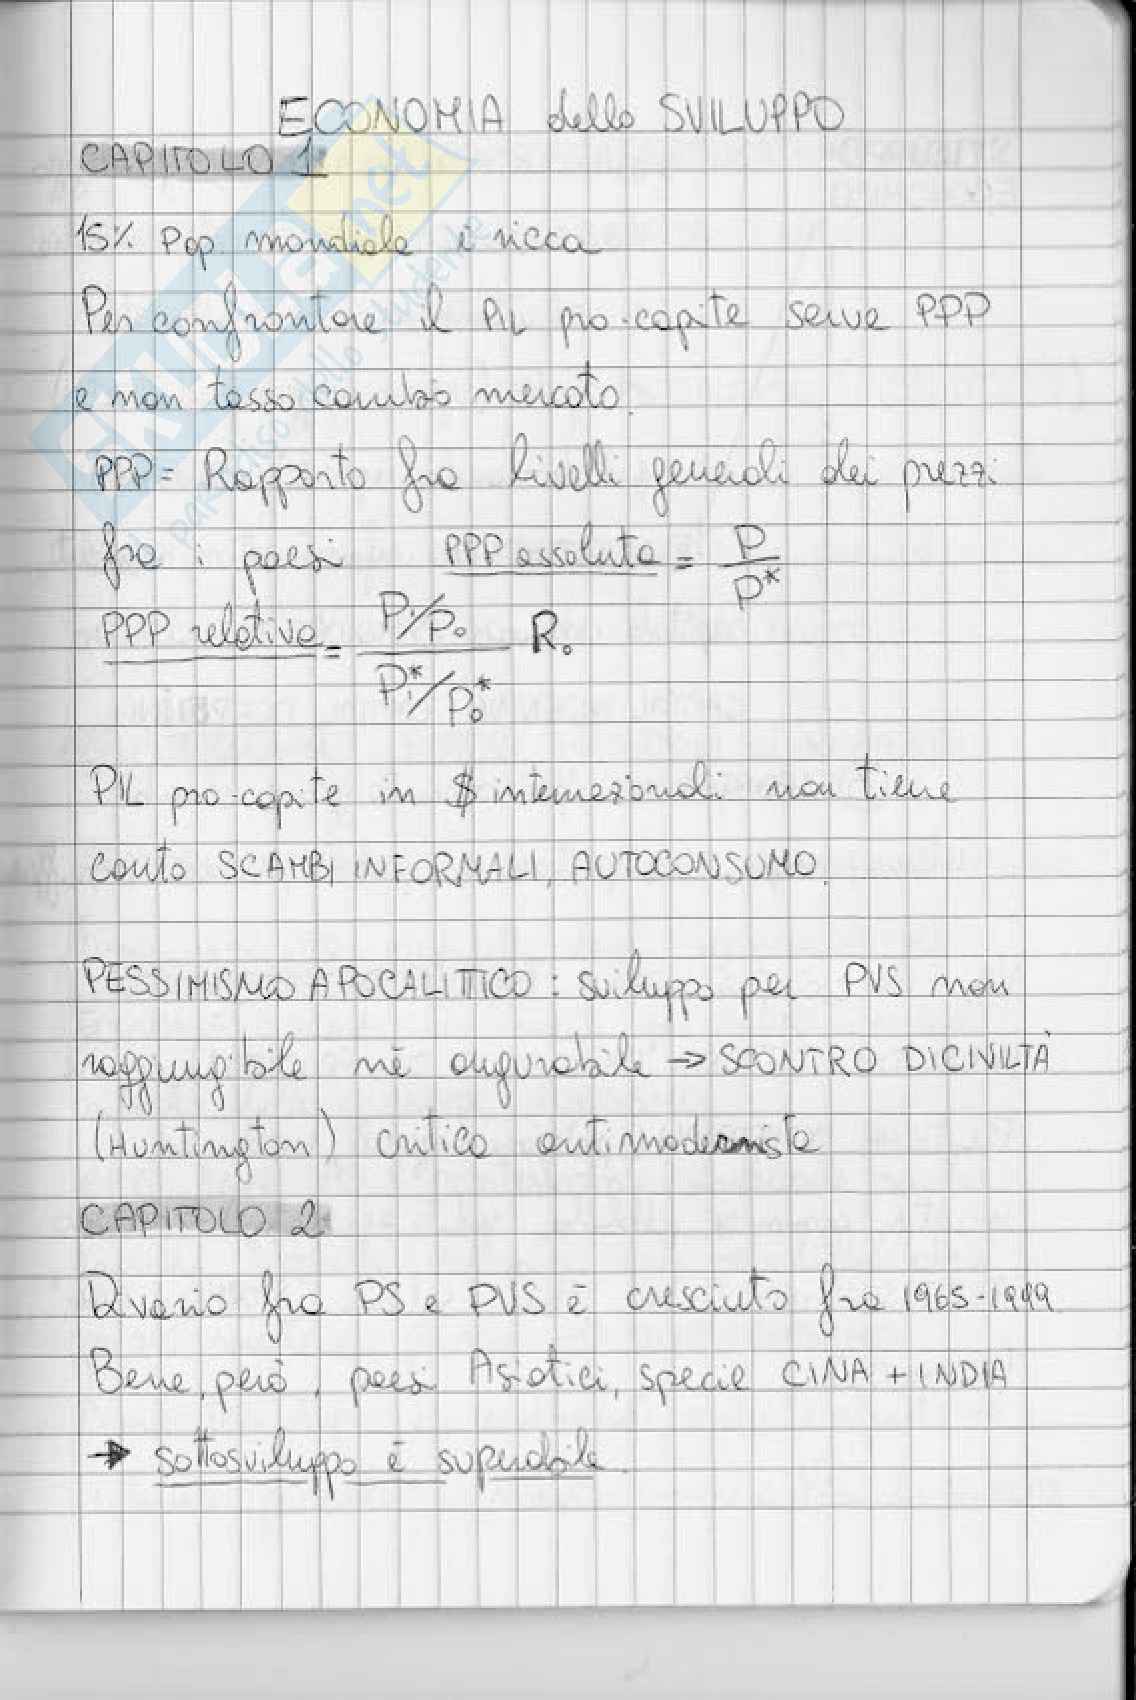 ECONOMIA dello SVILUPPO
CAPITOLO 1
15% Pop mondiale è ricca
Per confrontare il PIL pro-capite serve PPP
e non tasso cambio mercato.
PPP = Rapporto fra livelli generali dei prezzi
fra i paesi PPP assoluta = P/P*
PPP relativa = (P₁/P₀)/(P₁*/P₀*) R₀
PIL pro-capite in $ internazionali non tiene
conto SCAMBI INFORMALI, AUTOCONSUMO.
PESSIMISMO APOCALITTICO: sviluppo per PVS non
raggiungibile né augurabile → SCONTRO DI CIVILTÀ
(Huntington) critica antimodernista
CAPITOLO 2
Divario fra PS e PVS è cresciuto fra 1965-1999
Bene, però, paesi Asiatici, specie CINA + INDIA
→ sottosviluppo è superabile.
SKUOLA.net